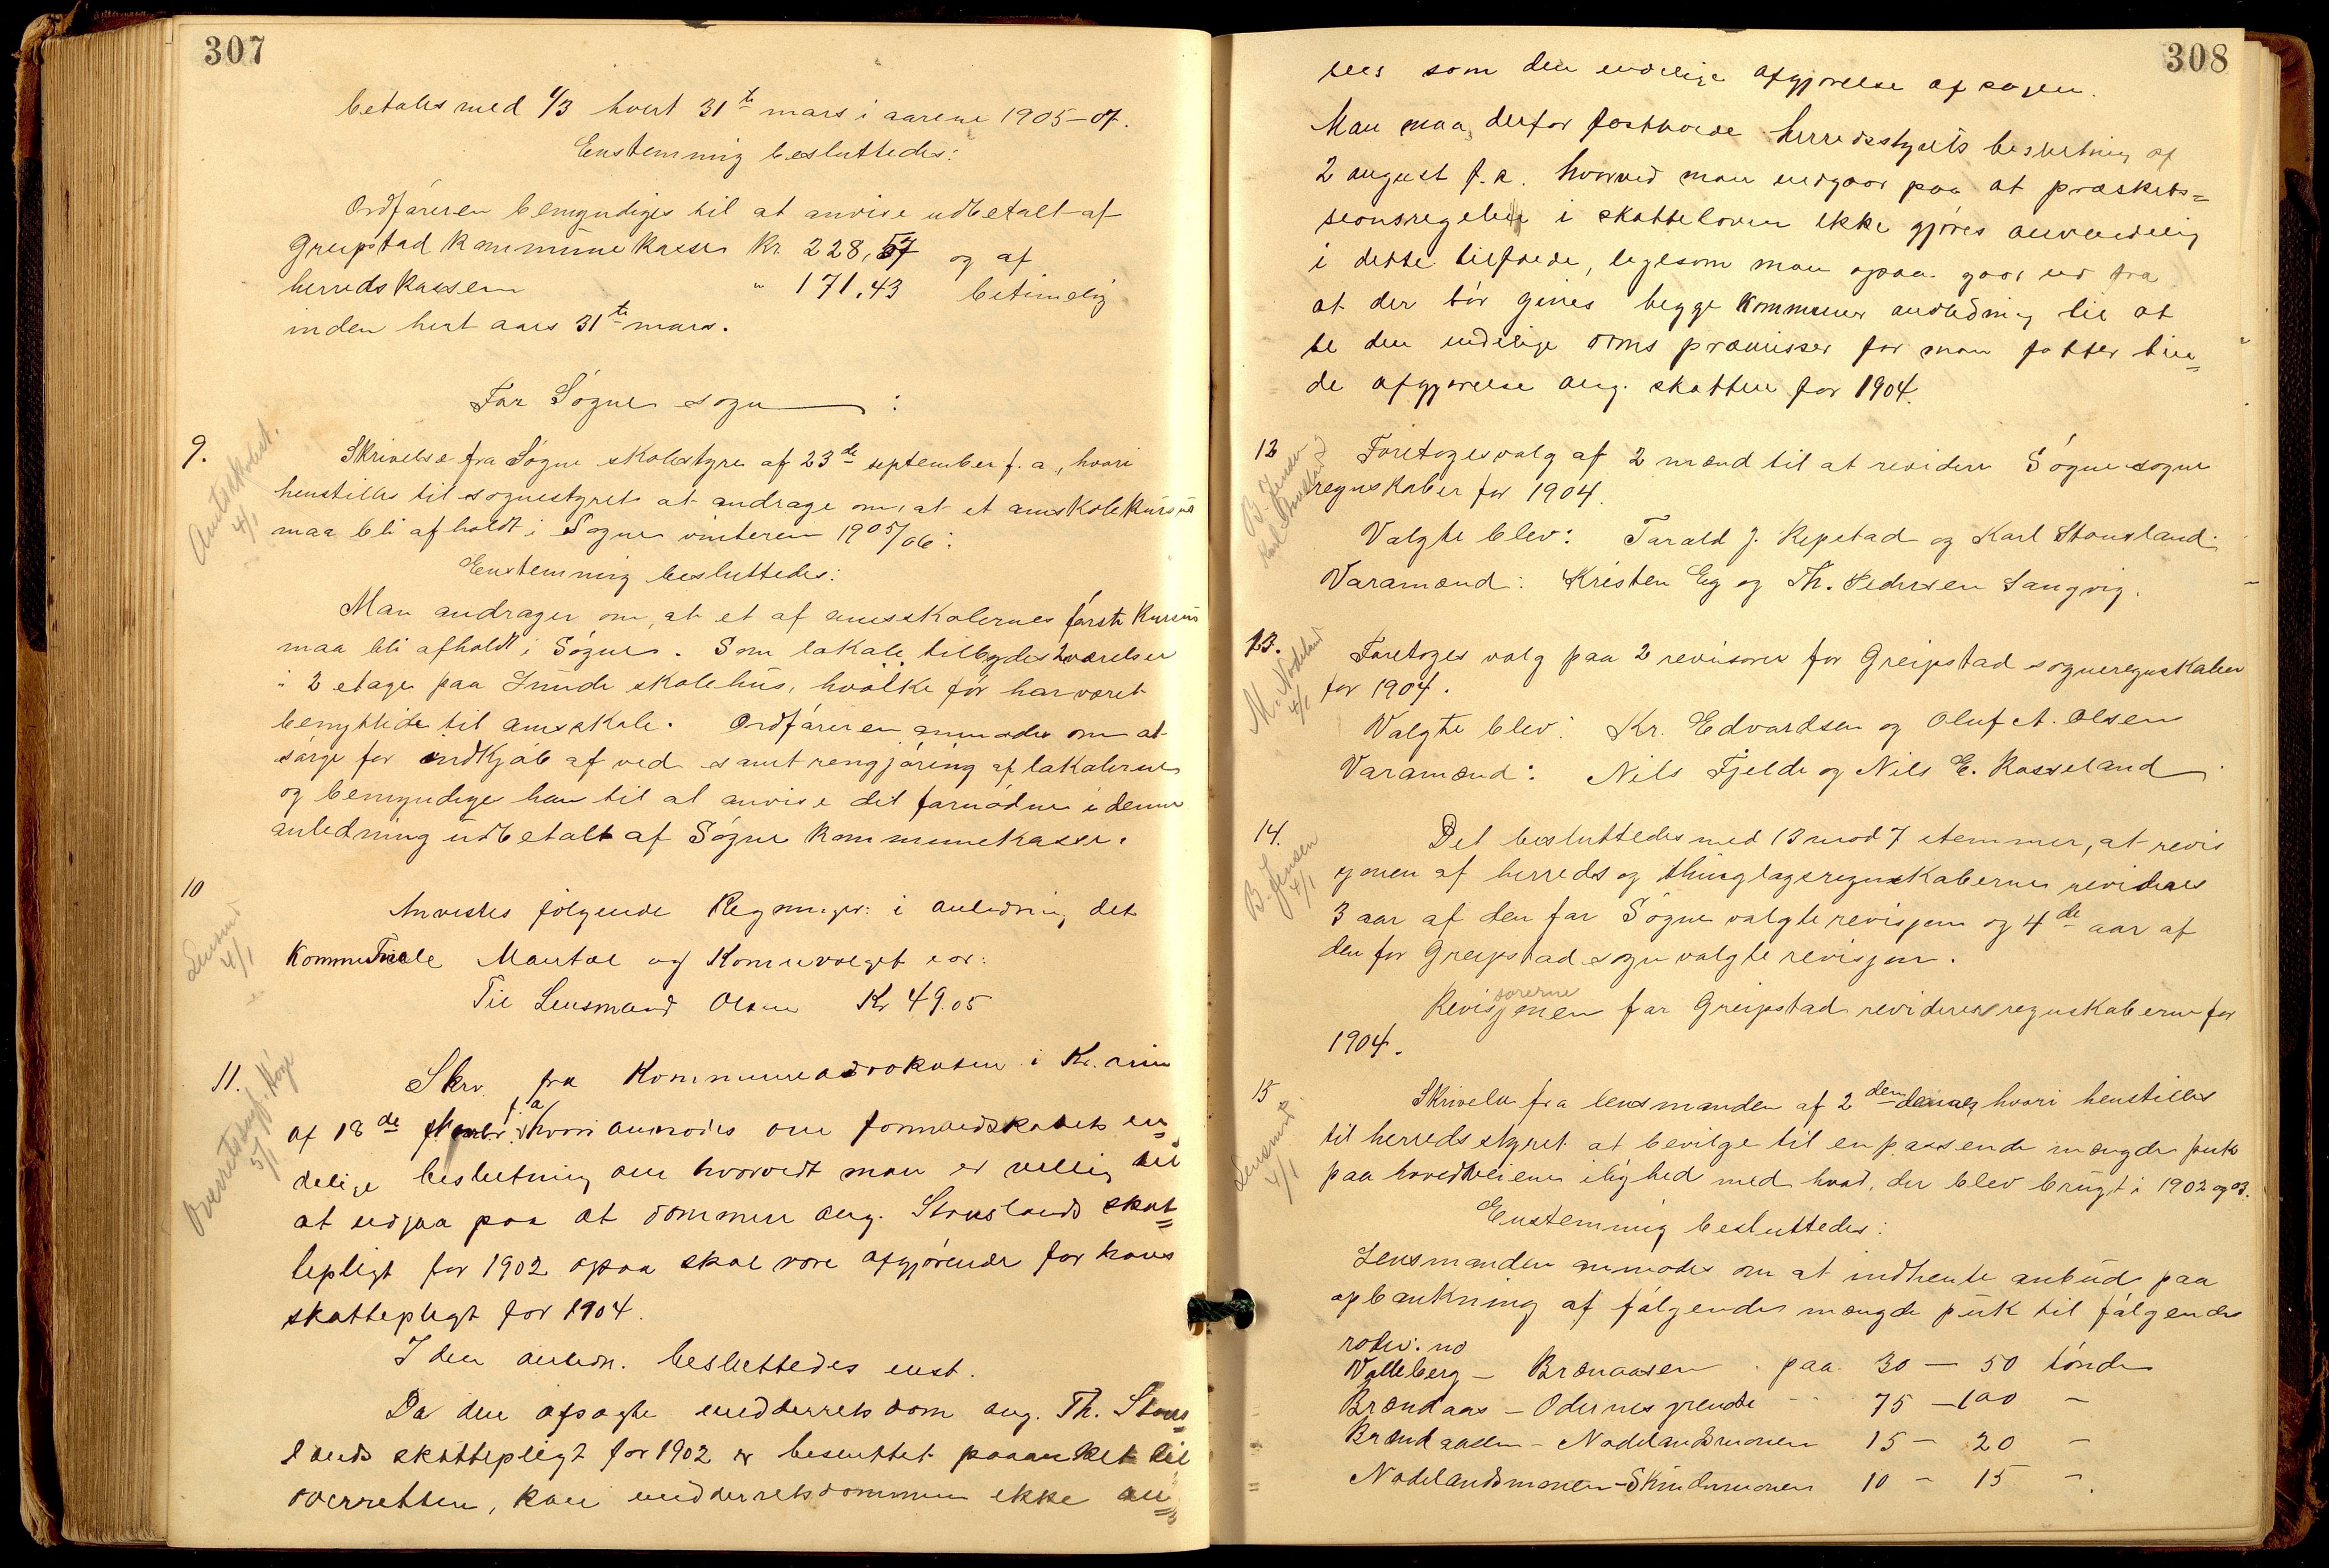 307
betales med 1/3 hvert 31te mars i aarene 1905-07.
Enstemmig besluttedes:
Ordføreren bemyndiges til at anvise udbetalt af
Greipstad kommunekasse Kr. 228,57 og af
herredskassen " 171.43 betimelig
inden hvert aars 31te mars.
For Søgne sogn :
9.
Amtsskolest.
4/1
Skrivelse fra Søgne skolestyre af 23de september f. a., hvori
henstilles til sognestyret at andrage om, at et amskolekursus
maa bli afholdt i Søgne vinteren 1905/06:
Enstemmig besluttedes:
Man andrager om, at et af amsskolernes første kursus
maa bli afholdt i Søgne. Som lokale tilbydes 2 værelser
i 2 etage paa Lunde skolehus, hvilke før har været
benyttede til amsskole. Ordføreren anmodes om at
sørge for indkjøb af ved samt rengjøring af lokalerne
og bemyndiges han til at anvise det fornødne i denne
anledning udbetalt af Søgne kommunekasse.
10
Lensmd
4/1
Anvistes følgende Regninger i anledning det
kommunale Mantal og Komunvalget ior:
Til Lensmand Olsen Kr 49.05
11.
Overretssagf. Høye
5/1
Skrv. fra Kommuneadvokaten i Kr.sand
af 18de f. a. hvori anmodes om formandskabets en=
delige beslutning om hvorvidt man er villig til
at indgaa paa at dommen ang. Stouslands skat=
tepligt for 1902 ogsaa skal være afgjørende for hans
skattepligt for 1904.
I den anledn. besluttedes enst.
Da den afsagte underretsdom ang. Th. Stous=
lands skattepligt for 1902 er besluttet paaanket til
overretten, kan underretsdommen ikke an=
308
sees som den endelige afgjørelse af sagen.
Man maa derfor fastholde herredsstyrets beslutning af
2 august f. a. hvorved man indgaar paa at præskrip=
sionsregelen i skatteloven ikke gjøres anvendelig
i dette tilfælde, ligesom man ogsaa gaar ud fra
at der bør gives begge kommuner anledning til at
se den endelige doms præmisser før man fatter bin=
de afgjørelse ang. skatten for 1904.
12
B. Jensen
Karl Stousland
Foretoges valg af 2 mænd til at revidere Søgne sogne
regnskaber for 1904.
Valgte blev: Tarald J. Repstad og Karl Stousland.
Varamænd: Kristen Eg og Th. Pedersen Langvig.
13.
M. Nodeland
4/1
Foretoges valg paa 2 revisorer for Greipstad sogneregnskaber
for 1904.
Valgte blev: Kr. Edvardsen og Oluf A. Olsen
Varamænd: Nils Fjelde og Nils E. Rosseland
14.
B. Jensen
4/1
Det besluttedes med 13 mod 7 stemmer, at revis
jonen af herreds og thinglagsregnskaberne revideres
3 aar af den for Søgne valgte revisjon og 4de aar af
den for Greipstad sogn valgte revisjon.
sorerne
Revisjonen for Greipstad reviderer regnskaberne for
1904.
15
Lensmd.
4/1
Skrivelse fra lensmanden af 2den hvori henstilles
til herredsstyret at bevilge til en passende mængde puk
paa hovedveiene i lighed med hvad, der blev brugt i 1902 og 03.
Enstemmig besluttedes:
Lensmanden anmodes om at indhente anbud paa
opbankning af følgende mængde puk til følgende
roder: no
Valleberg - Brænaasen paa 30 - 50 tønder
Brændaas - Odernes grende - 75 - 100 -
Brændaasen - Nodelandsmonen 15 - 20 -
Nodelandsmonen - Skindermonen 10 - 15 -